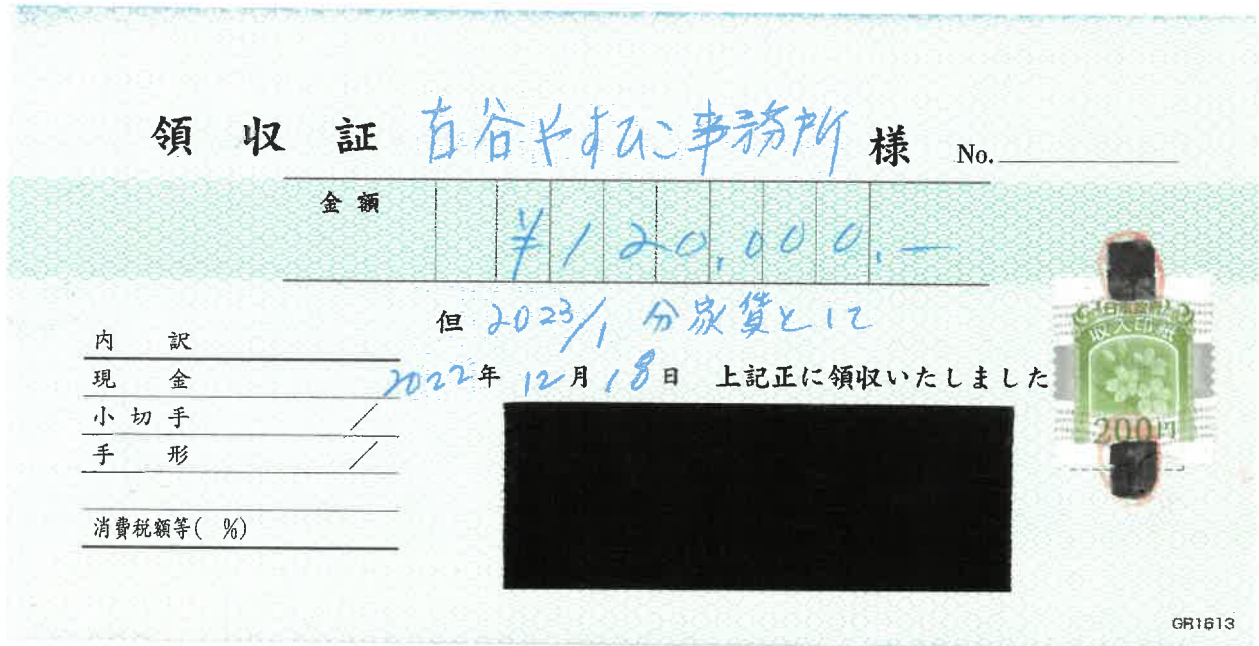 領収証 古谷やすひこ事務所 様 No.
金額 ¥120,000.-
但 2023/1 分家賃として
内訳
現金 2022年 12月 18日 上記正に領収いたしました
小切手 /
手形 /
消費税額等( %)
収入印紙
200円
GR1613